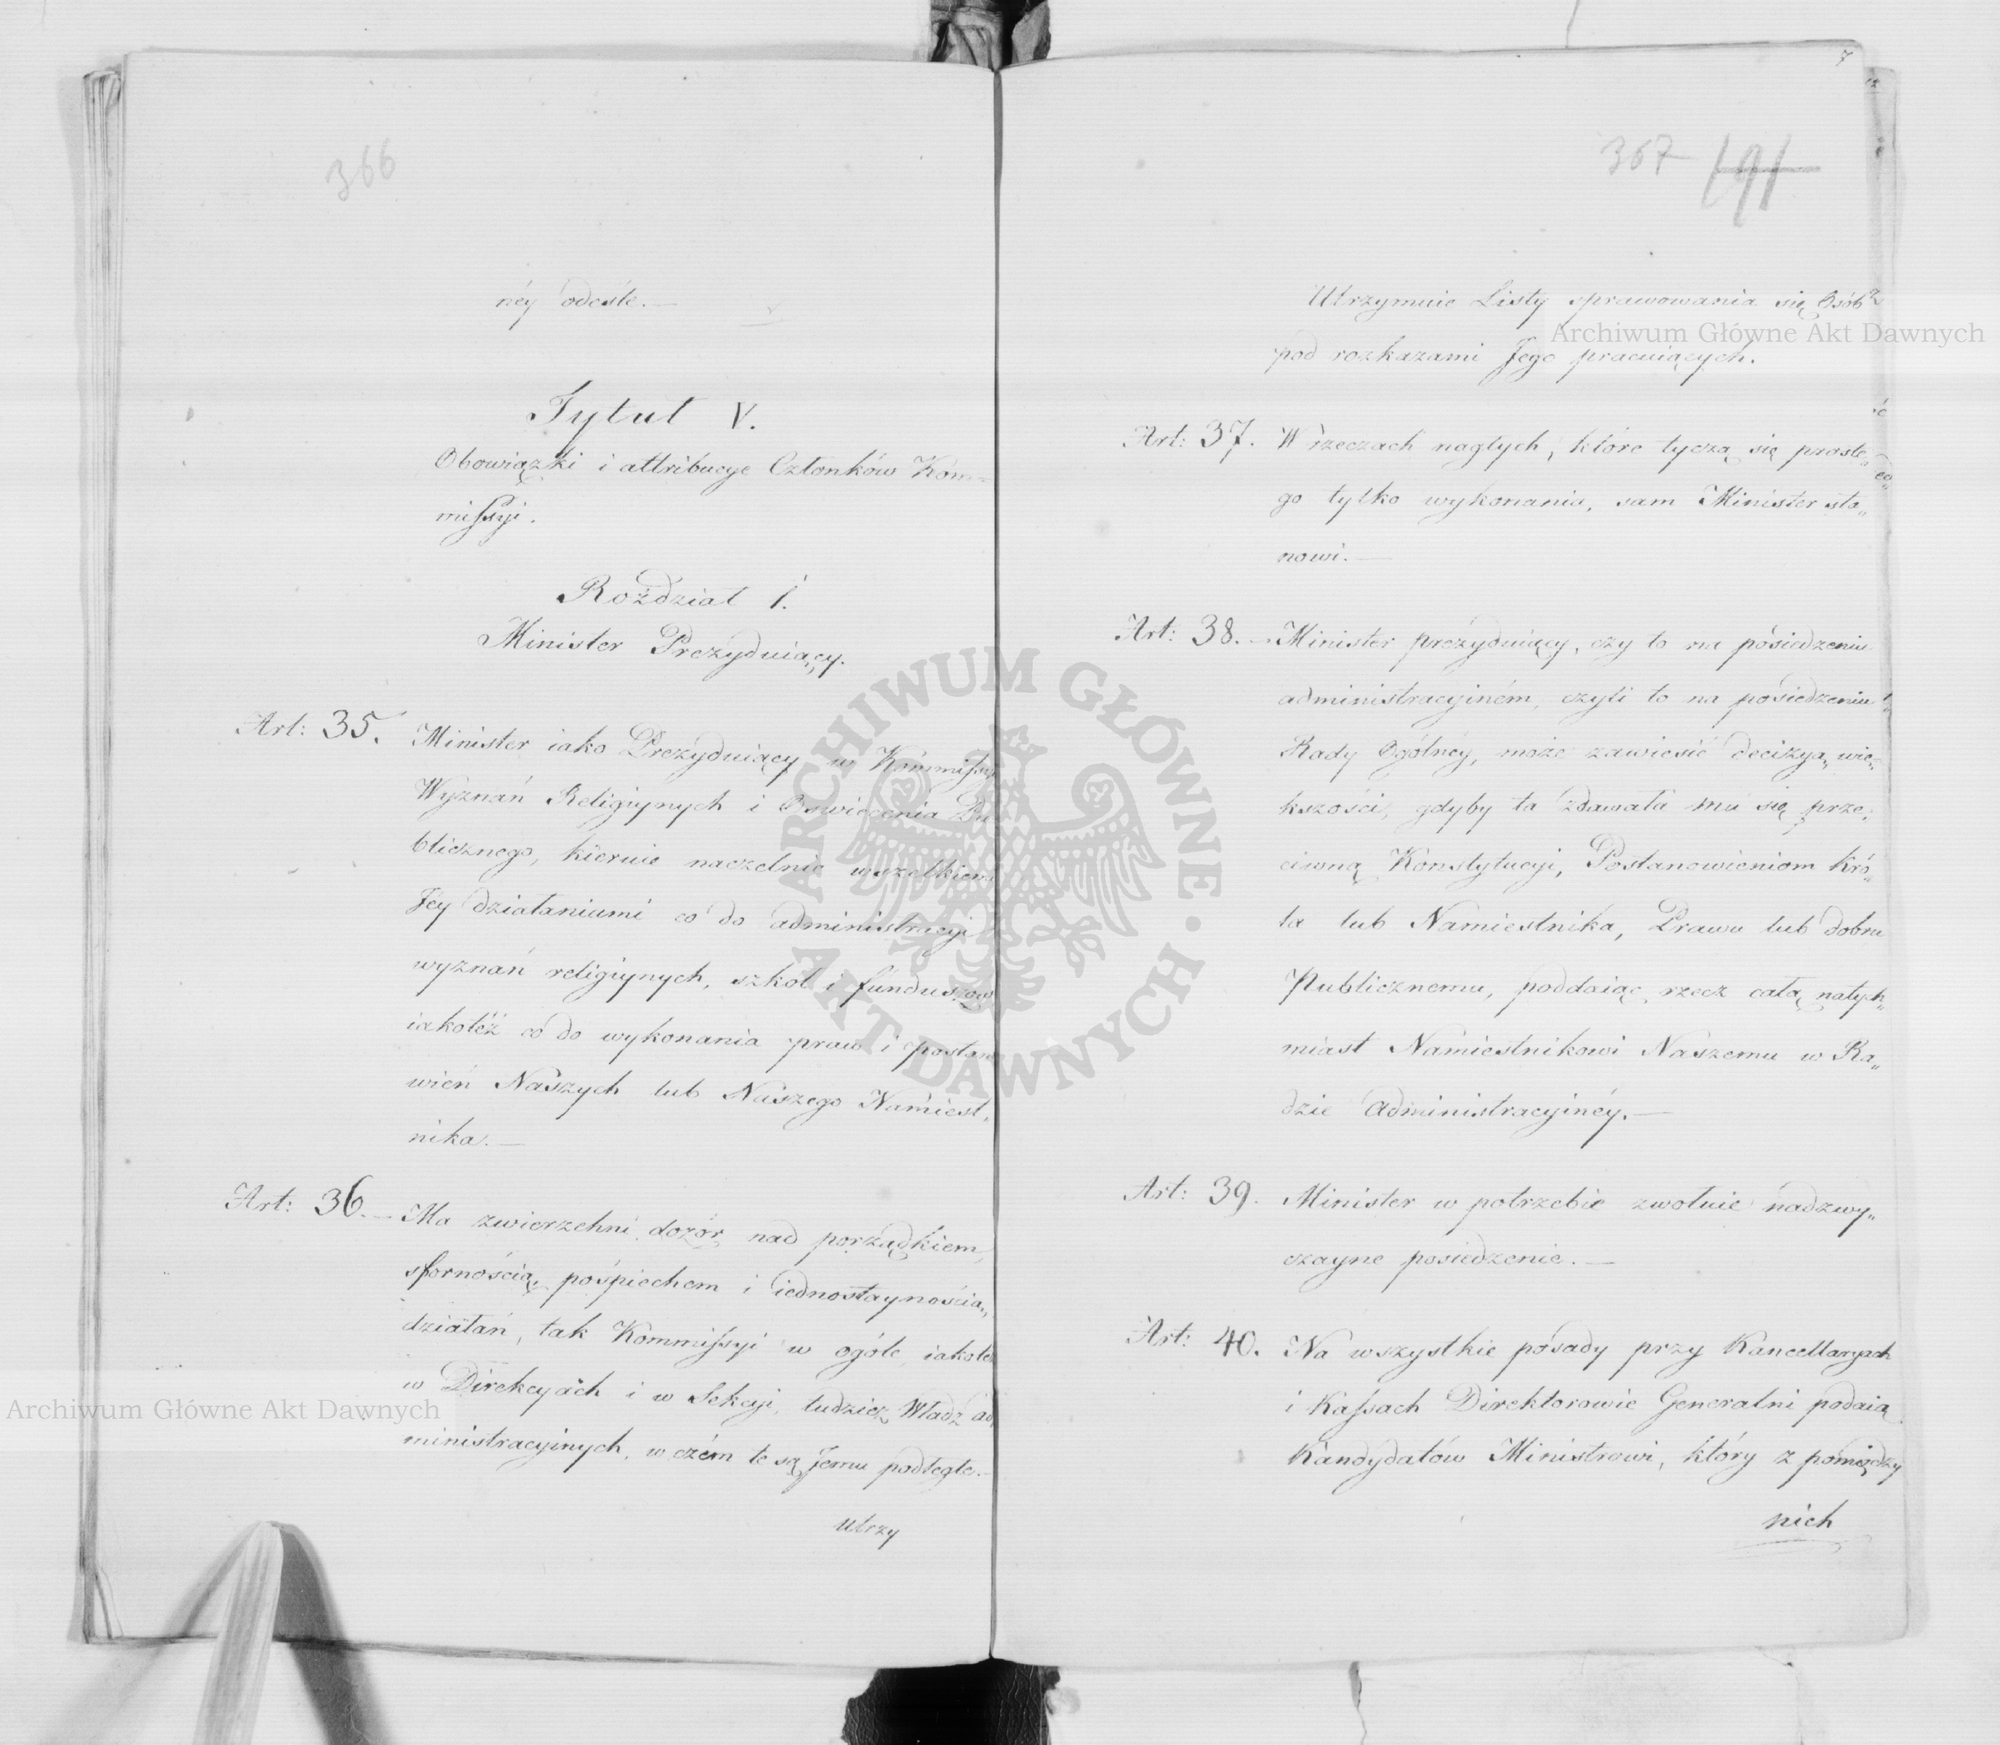 366
néy odeśle.—
Tytuł V.
Obowiązki i attribucye Członków Kom=
missyi.
Rozdział I.
Minister Prezyduiący.
Art: 35. Minister iako Prezyduiący w Kommissyi
Wyznań Religiynych i Oswiecenia Pu
blicznego, kieruie naczelnie wszelkiemi
Jey działaniami co do administracyi
wyznań religiynych, szkół i funduszów
iakotéż co do wykonania praw i postano
wień Naszych lub Naszego Namiest„
nika.—
Art: 36.— Ma zwierzchni dozór nad porządkiem,
sfornością, pośpiechem i iednostaynością,
działań, tak Kommissyi w ogóle iakoteż
w Direkcyach i w Sekcyi, tudzież Władz ad
ministracyinych, w czém te są Jemu podległe.—
Utrzy
7
367 191
Utrzymuie Listy sprawowania się Osób
pod rozkazami Jego pracuiących.
Art: 37. W rzeczach nagłych, które tyczą się proste„
go tylko wykonania, sam Minister sta„
nowi.—
Art: 38.— Minister prezyduiący, czy to na posiedzeniu
administracyiném, czyli to na posiedzeniu
Rady Ogólnéy, może zawiesić decizyą wię„
kszości, gdyby ta zdawała mu się prze„
ciwną Konstytucyi, Postanowieniom Kró„
la lub Namiestnika, Prawu lub dobru
Publicznemu, poddaiąc rzecz całą natych„
miast Namiestnikowi Naszemu w Ra„
dzie Administracyinéy.—
Art: 39. Minister w potrzebie zwołuie nadzwy„
czayne posiedzenie.—
Art: 40. Na wszystkie posady przy Kancellaryach
i Kassach Direktorowie Generalni podaią
Kandydatów Ministrowi, który z pomiędzy
nich
Archiwum Główne Akt Dawnych
Archiwum Główne Akt Dawnych
ARCHIWUM GŁÓWNE · AKT DAWNYCH ·